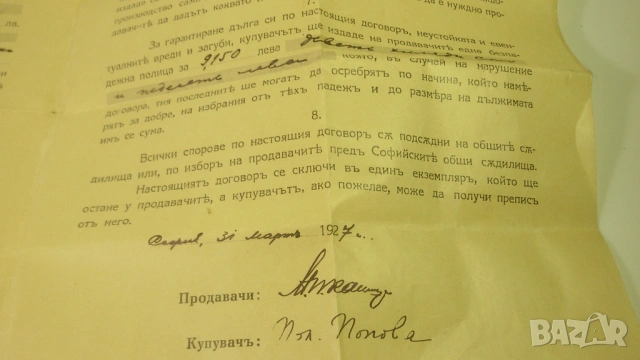 е нужно про-
производство само
давачитѣ да дадътъ каквато
7.
За гарантиране дълга си по настоящия договоръ, неустойката и евен-
туалнитѣ вреди и загуби, купувачътъ ще издаде на продавачитѣ една безпа-
дежна полица за 9150 лева деветь хиляди сто
и педесеть лева която, въ случей на нарушение
договора, тия последнитѣ ще могатъ да осребрятъ по начина, който намѣ-
рятъ за добре, на избрания отъ тѣхъ падежъ и до размѣра на дължимата
имъ се сума.
8.
Всички спорове по настоящия договоръ сѫ подсѫдни на общитѣ сѫ-
дилища или, по изборъ на продавачитѣ предъ Софийскитѣ общи сѫдилища.
Настоящиятъ договоръ се сключи въ единъ екземпляръ, който ще
остане у продавачитѣ, а купувачътъ, ако пожелае, може да получи преписъ
отъ него.
София, 31 мартъ 1927 г.
Продавачи:
Купувачъ: Пол. Попова
BAZAR.BG